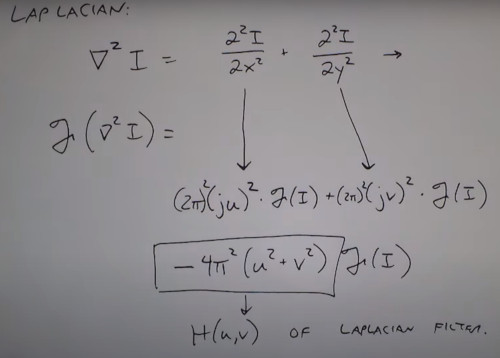 LAPLACIAN:
∇² I = ∂²I/∂x² + ∂²I/∂y² →
ℱ(∇² I) =
(2π)²(ju)² · ℱ(I) + (2π)²(jv)² · ℱ(I)
-4π² (u² + v²) ℱ(I)
H(u,v) OF LAPLACIAN FILTER.